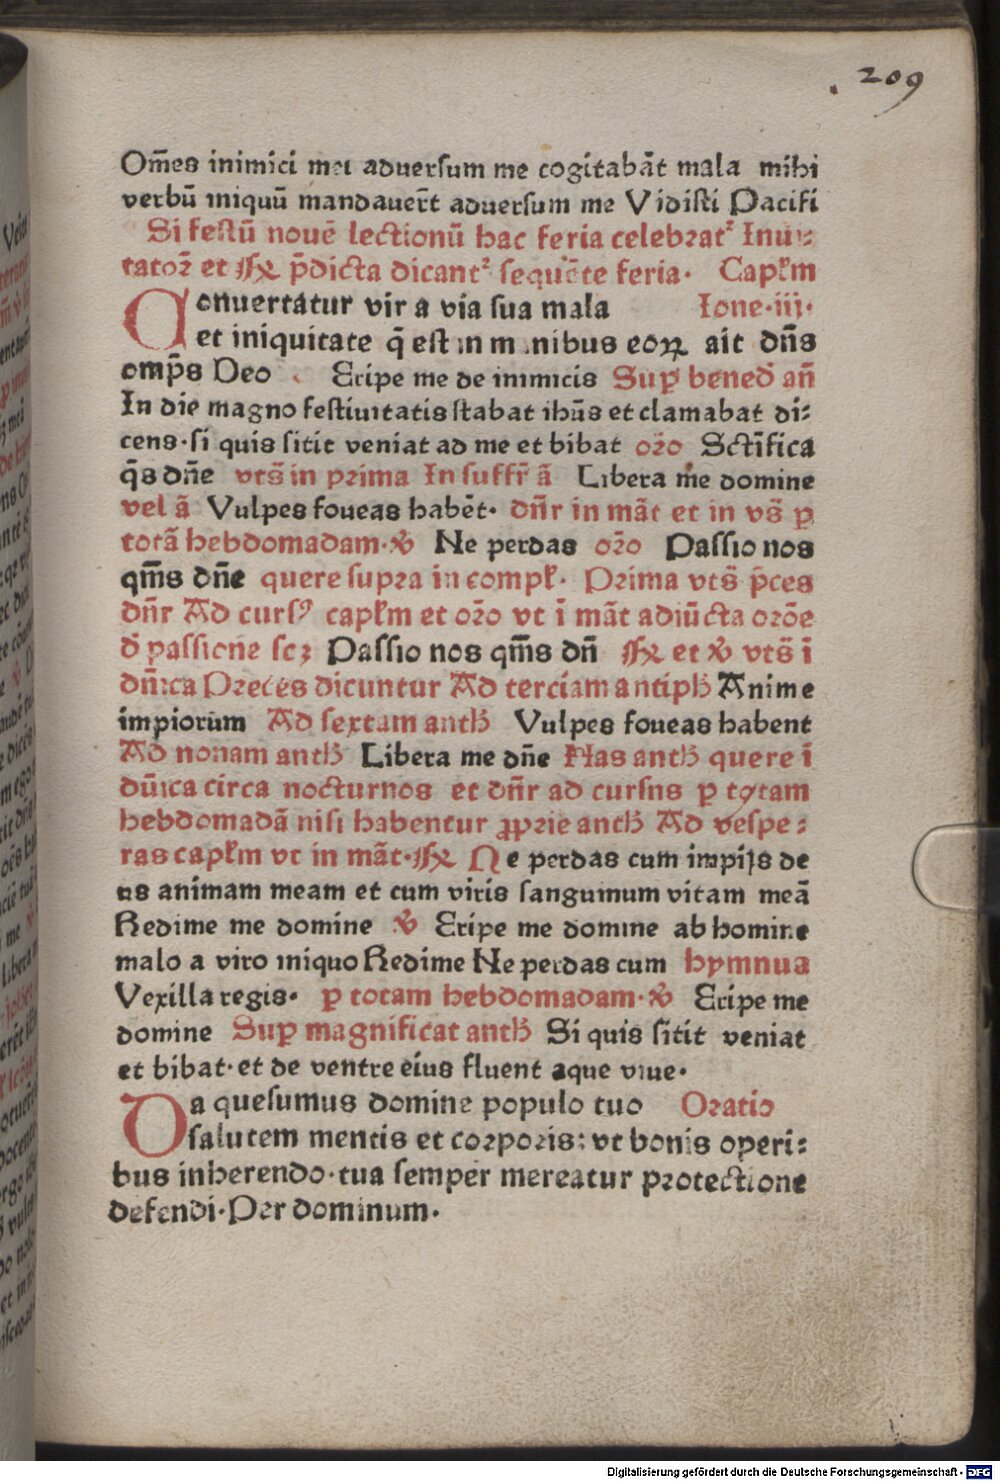 209
Om̄es inimici mei aduersum me cogitabāt mala mihi
verbū iniquū mandauer̄t aduersum me Vidisti Pacifi
Si festū nouē lectionū hac feria celebrat᷑ Inui⸗
tatoꝝ et ℟ p̄dicta dicant᷑ sequēte feria. Capl̄m
Conuertatur vir a via sua mala Ione.iij.
et iniquitate q̄ est in manibus eoꝝ ait dn̄s
omp̄s Deo Eripe me de inimicis Suꝑ bened̄ an̄
In die magno festiuitatis stabat ihūs et clamabat di⸗
cens.si quis sitit veniat ad me et bibat oꝛ̄o Sctīfica
q̄s dn̄e vts̄ in pꝛima In suffr̄ ā Libera me domine
vel ā Vulpes foueas habēt. dn̄r in māt et in vs̄ ꝑ
totā hebdomadam.℣ Ne perdas oꝛ̄o Passio nos
qm̄s dn̄e quere supꝛa in compl̄. Pꝛima vts̄ p̄ces
dn̄r Ad curs⁹ capl̄m et oꝛ̄o vt ī māt adiūcta oꝛōe
d̄ passione scꝫ Passio nos qm̄s dn̄ ℟ et ℣ vts̄ ī
dn̄ica Pꝛeces dicuntur Ad terciam antiph̄ Anime
impiorum Ad sextam anth̄ Vulpes foueas habent
Ad nonam anth̄ Libera me dn̄e Has anth̄ quere ī
dn̄ica circa nocturnos et dn̄r ad cursus ꝑ totam
hebdomadā nisi habentur ꝓpꝛie anth̄ Ad vespe⸗
ras capl̄m vt in māt.℟ Ne perdas cum impijs de
us animam meam et cum viris sanguinum vitam meā
Redime me domine ℣ Eripe me domine ab homine
malo a viro iniquo Redime Ne perdas cum hymnus
Vexilla regis. ꝑ totam hebdomadam.℣ Eripe me
domine Suꝑ magnificat anth̄ Si quis sitit veniat
et bibat.et de ventre eius fluent aque viue.
Da quesumus domine populo tuo Oꝛatio
salutem mentis et coꝛpoꝛis: vt bonis operi⸗
bus inherendo.tua semper mereatur pꝛotectione
defendi.Per dominum.
Digitalisierung gefördert durch die Deutsche Forschungsgemeinschaft - DFG